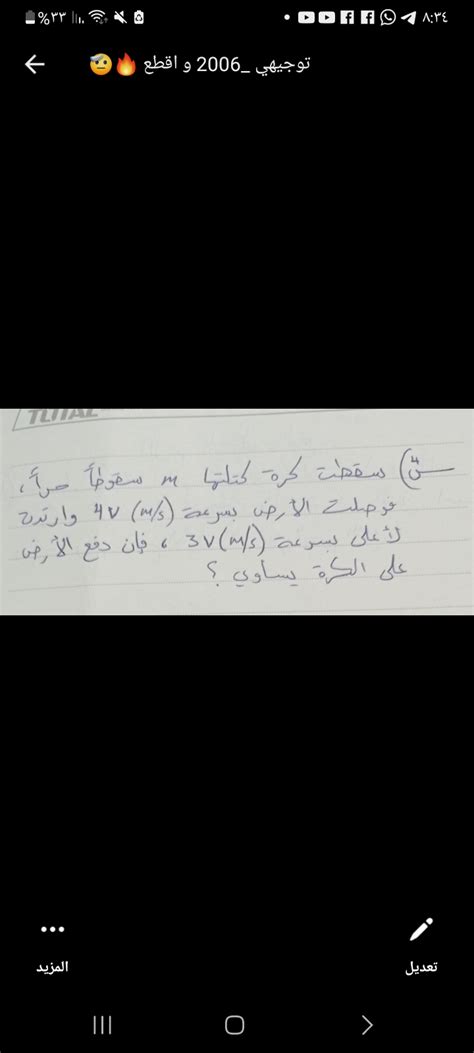 %٣٣
٨:٣٤
توجيهي _2006 و اقطع 🔥🤕
TOTAL
س٤) سقطت كرة كتلتها m سقوطاً حراً،
فوصلت الأرض بسرعة 4v (m/s) وارتدت
لأعلى بسرعة 3v (m/s) ، فإن دفع الأرض
على الكرة يساوي ؟
المزيد
تعديل